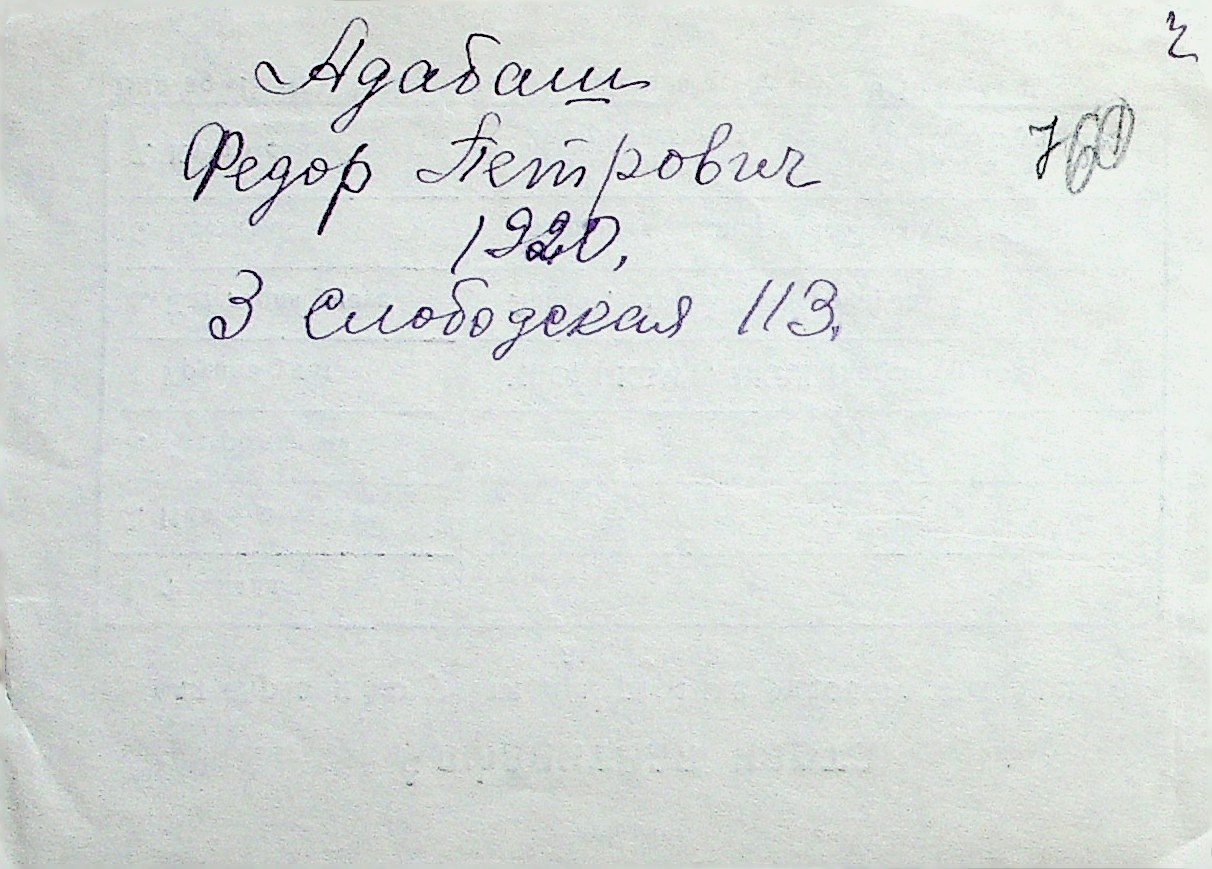 Адабаш
Федор Петрович
1920,
3 Слободская 113.